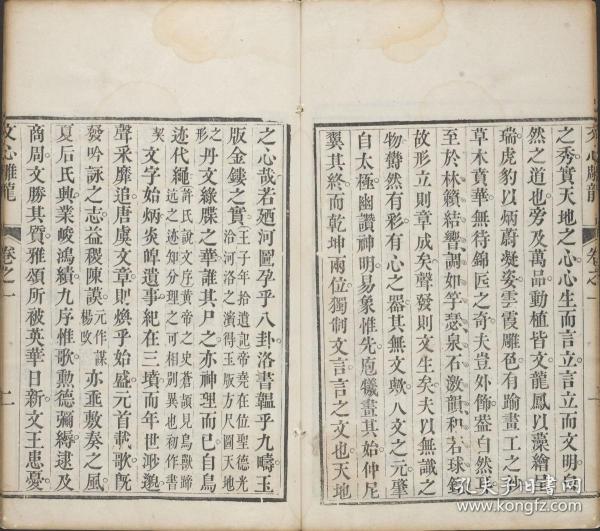 之秀實天地之心心生而言立言立而文明自
然之道也旁及萬品動植皆文龍鳳以藻繪呈
瑞虎豹以炳蔚凝姿雲霞雕色有踰畫工之妙
草木賁華無待錦匠之奇夫豈外飾蓋自然耳
至於林籟結響調如竽瑟泉石激韻和若球鍠
故形立則章成矣聲發則文生矣夫以無識之
物鬱然有彩有心之器其無文歟人文之元肇
自太極幽讚神明易象惟先庖犧畫其始仲尼
翼其終而乾坤兩位獨制文言言之文也天地
之心哉若廼河圖孕乎八卦洛書韞乎九疇玉
版金鏤之實王子年拾遺記帝堯在位聖德光洽河洛之濱得玉版方尺圖天地
之形丹文綠牒之華誰其尸之亦神理而已自鳥
迹代繩許氏說文序黃帝之史蒼頡見鳥獸蹄迒之迹知分理之可相別異也初作書
契文字始炳炎皥遺事紀在三墳而年世渺邈
聲采靡追唐虞文章則煥乎始盛元首載歌既
發吟詠之志益稷陳謨元作謀楊改亦垂敷奏之風
夏后氏興業峻鴻績九序惟歌勳德彌縟逮及
商周文勝其質雅頌所被英華日新文王患憂
文心雕龍 卷之一 二
孔夫子旧书网
www.kongfz.com